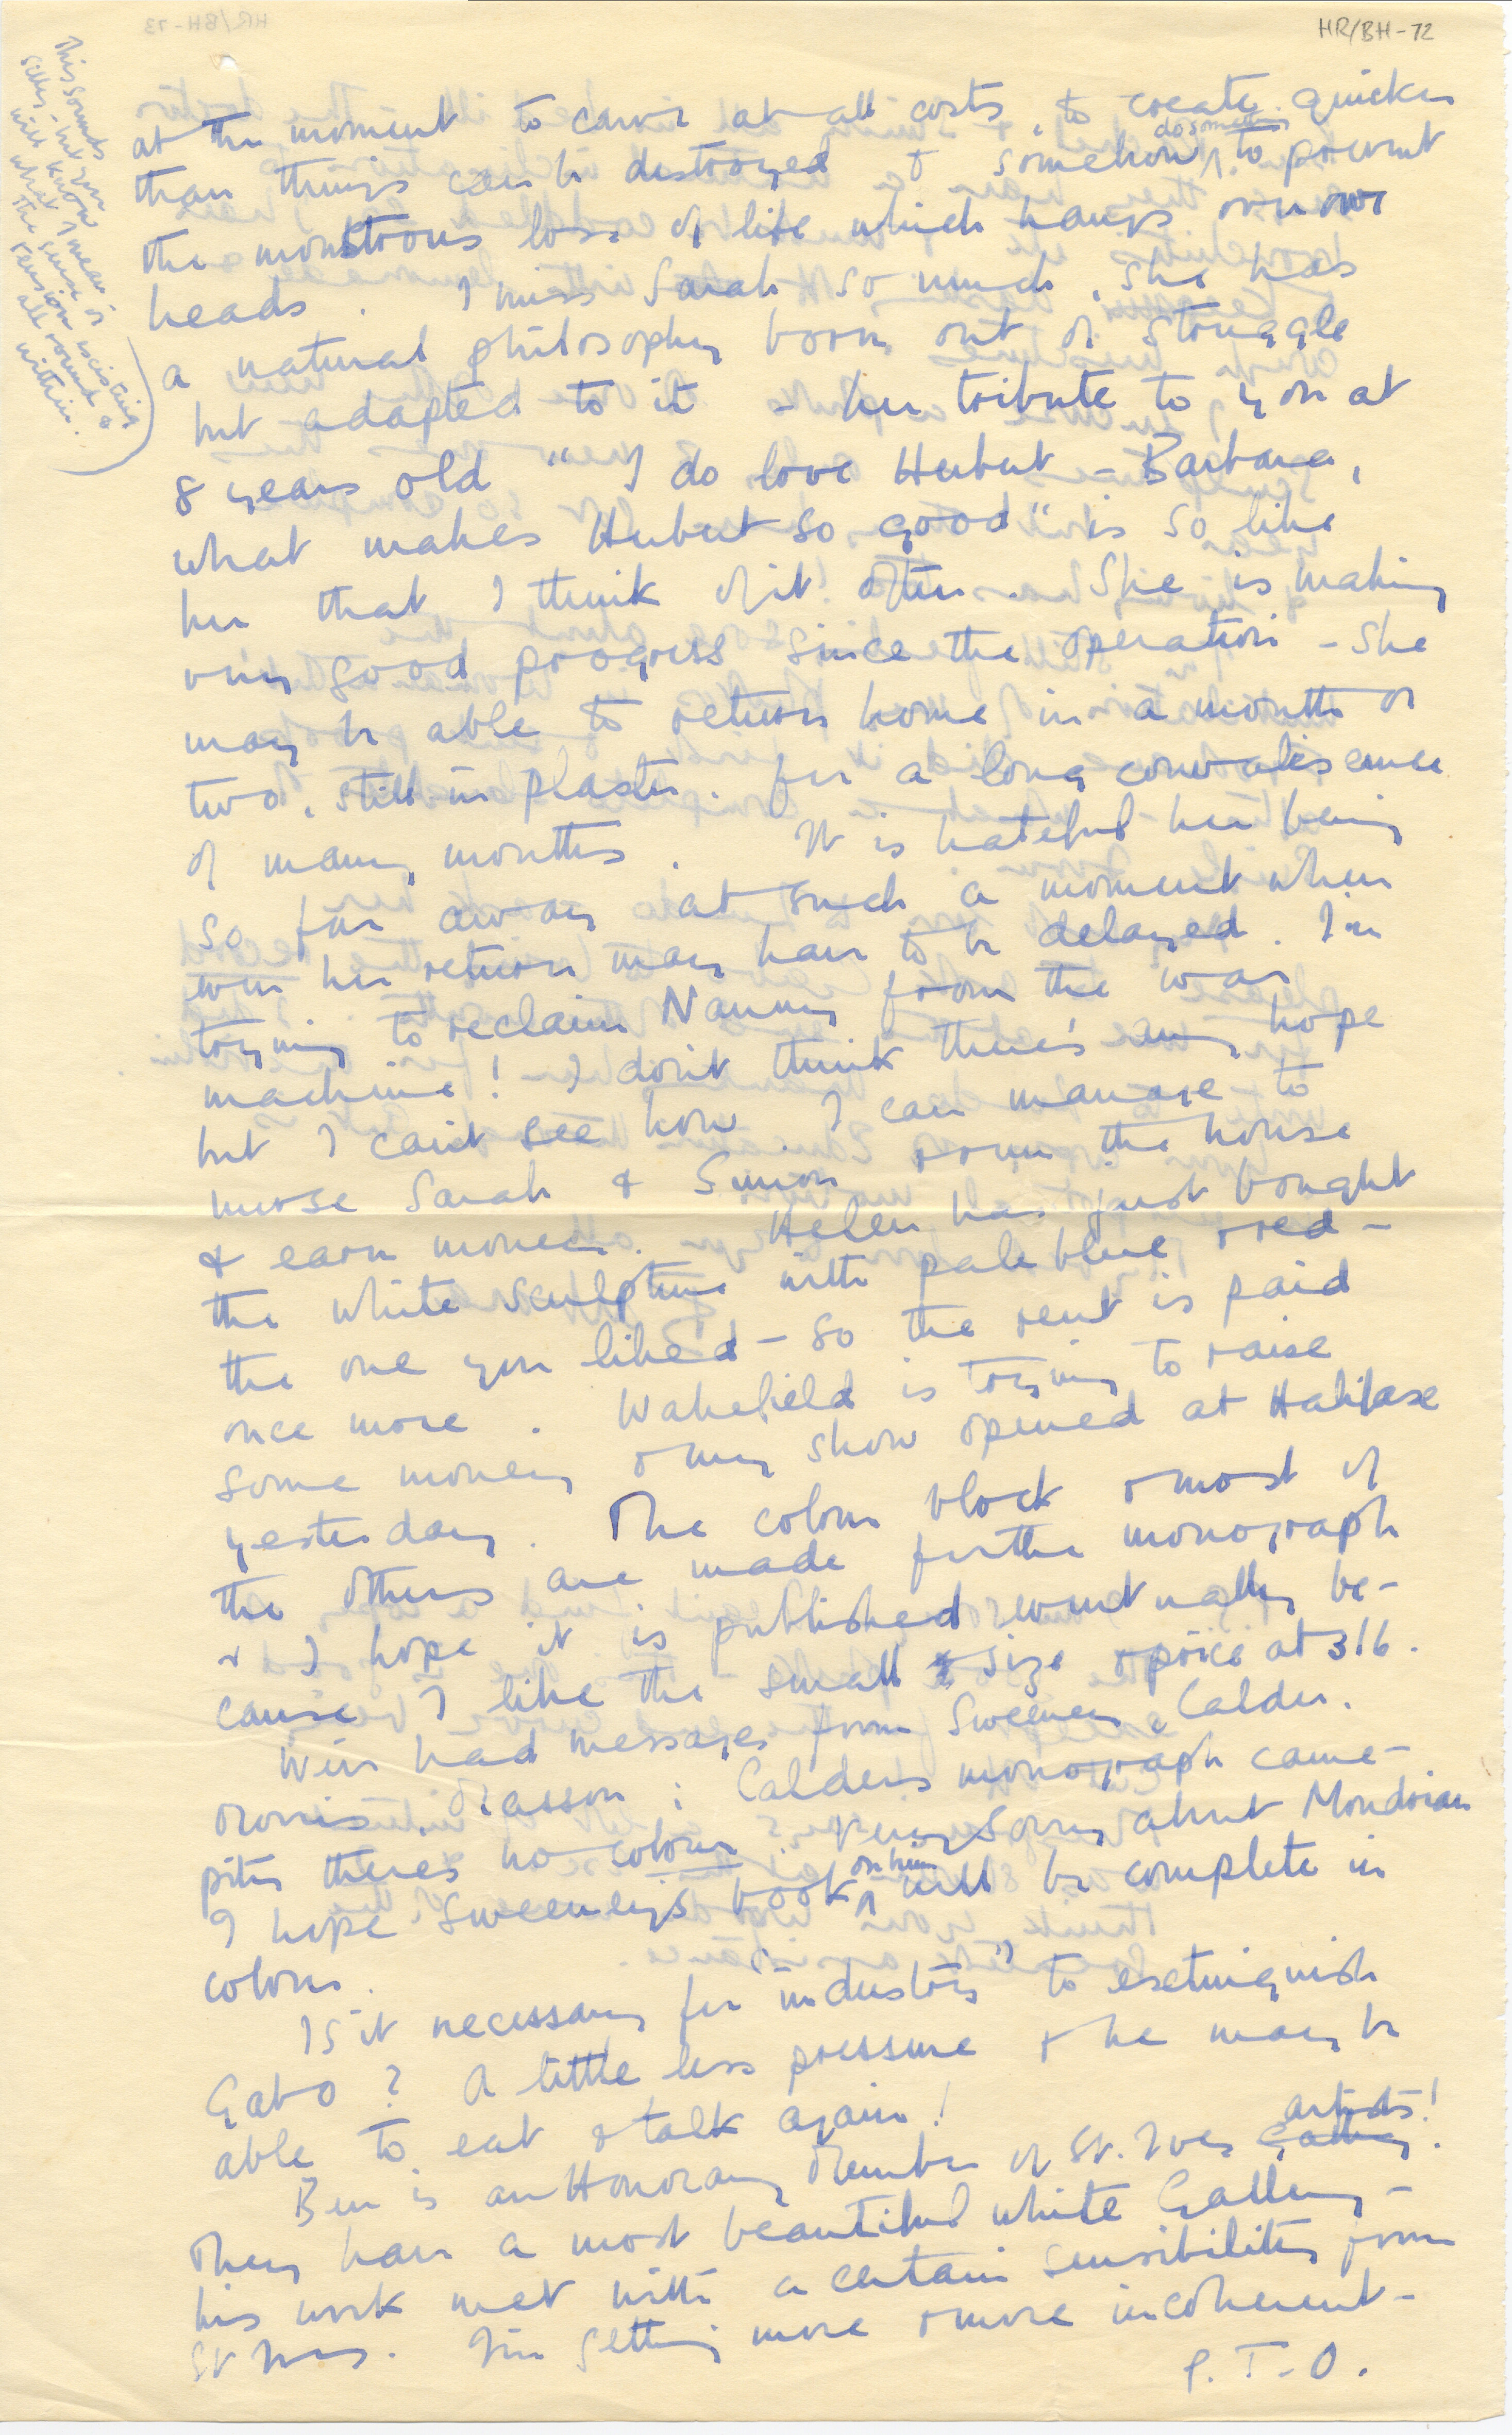 HR/BH-72
at the moment to carve at all costs, to create quicker
do something
than things can be destroyed & somehow to prevent
the monstrous loss of life which hangs over our
heads. I miss Sarah so much, she has
a natural philosophy born out of struggle
but adapted to it - her tribute to you at
8 years old "I do love Herbert - Barbara,
what makes Herbert so good" is so like
her that I think of it often. She is making
very good progress since the operation - she
may be able to return home in a month or
two, still in plaster. for a long convalescence
of many months. It is hateful her being
so far away at such a moment when
even her return may have to be delayed. I'm
trying to reclaim Nanny from the war
machine! I don't think there's any hope
but I can't see how I can manage to
nurse Sarah & Simon run the house
& earn money. Helen has just bought
the white sculpture with pale blue & red -
the one you liked - so the rent is paid
once more. Wakefield is trying to raise
some money & my show opened at Halifax
yesterday. The colour block & most of
the others are made for the monograph
& I hope it is published eventually be-
cause I like the small size & price at 3/6.
We've had messages from Sweeney, Calder.
Morris. Masson: Calders monograph came -
pity theres no colour. Very sorry about Mondrian
on him
I hope Sweeney's book will be complete in
colour.
Is it necessary for "industry" to extinguish
Gabo? A little less pressure & he may be
able to eat & talk again!
artists!
Ben is an Honorary Member of St. Ives Gallery.
They have a most beautiful white Gallery -
his work met with a certain sensibility from
St Ives. I'm getting more & more incoherent -
P.T.O.
This sounds
silly - but you
will know
what I mean is
the sense of
tension
all round &
within.
HR/BH-73